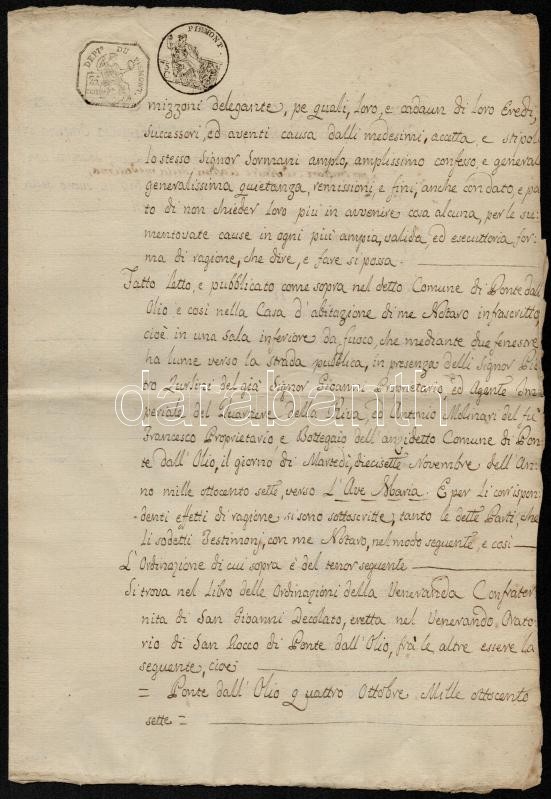 DEPT. DU
PIEMONT.
mizzoni delegante, pe quali, loro, e cadaun di loro Eredi,
Successori, ed aventi causa dalli medesimi, accetta, e stipol
lo stesso Signor Formani amplo, amplissimo confesso, e general
generalissima quietanza, remissioni, e fini, anche con dato, e pa
to di non chieder loro più in avvenire cosa alcuna, per le su
mentovate cause in ogni più ampia, valida, ed esecuttoria for:
ma di ragione, che dire, e fare si possa.
Fatto letto, e pubblicato come sopra nel detto Comune di Ponte dall
Olio e così nella Casa d'abitazione di me Notaro infrascritto,
cioè in una sala inferiore da fuoco, che mediante due fenestre
ha lume verso la strada pubblica, in presenza delli Signor Pie
tro del già Signor Gioanni Proprietario ed Agente
del della Riva, ed Antonio Molinari del fù
Francesco Proprietario e Bottegaio dell'anzidetto Comune di Pon
te dall'Olio, il giorno di Martedì, diecisette Novembre dell'An:
no mille ottocento sette, verso L'Ave Maria. E per li corrispon:
denti effetti di ragione si sono sottoscritte, tanto le dette Parti, che
li sodetti Testimonj, con me Notaro, nel modo seguente, e così
L'Ordinazione di cui sopra è del tenor seguente
Si trova nel Libro delle Ordinazioni della Veneranda Confrater
nita di San Gioanni Decolato, eretta nel Venerando Orato
rio di San Rocco di Ponte dall'Olio, frà le altre essere la
seguente, cioè
= Ponte dall'Olio quattro Ottobre Mille ottocento
sette =
darabanth